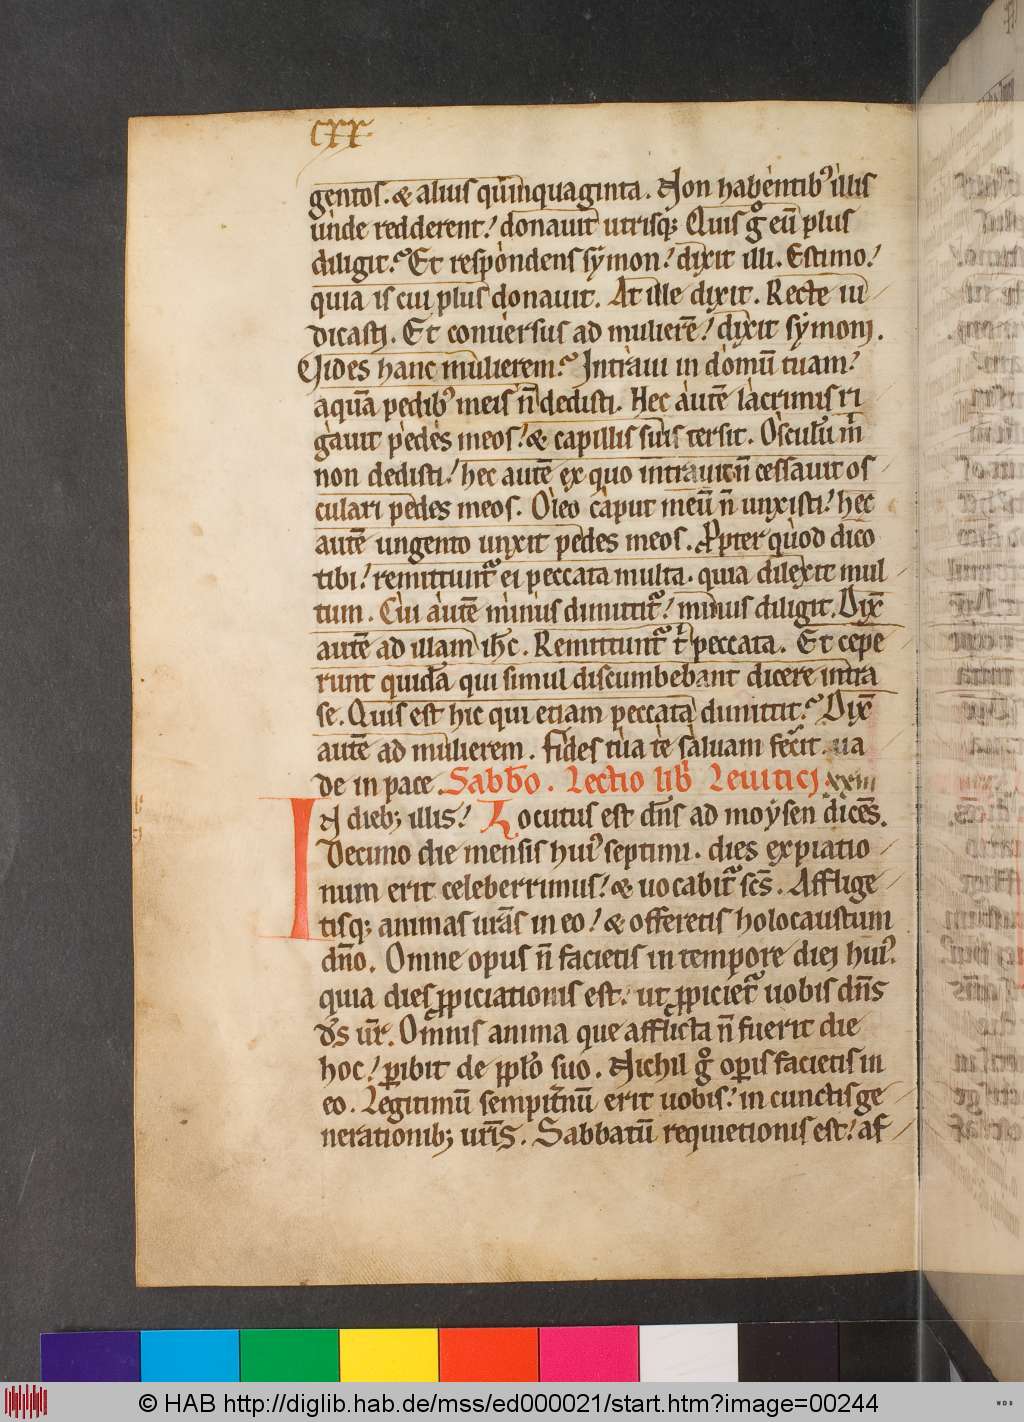 cxx.
gentos. & alius quinquaginta. Non habentib᾽ illis
unde redderent! donauit utrisq; Quis gͦ eū plus
diligit? Et respondens symon! dixit illi. Estimo!
quia is cui plus donauit. At ille dixit. Recte iu
dicasti. Et conuersus ad mulierē! dixit symoni.
Vides hanc mulierem? Intraui in domū tuam!
aquā pedib᾽ meis n̄ dedisti. Hec autē lacrimis ri
gauit pedes meos! & capillis suis tersit. Osculū m̄
non dedisti! hec autē ex quo intrauit n̄ cessauit os
culari pedes meos. Oleo caput meū n̄ unxisti! hec
autē ungento unxit pedes meos. Ꝓpter quod dico
tibi! remittunt᷑ ei peccata multa. quia dilexit mul
tum. Cui autē minus dimittit᷑! minus diligit. Dix̄
autē ad illam ihc̄. Remittunt᷑ t̄ peccata. Et cepe
runt quidā qui simul discumbebant dicere intra
se. Quis est hic qui etiam peccata dimittit? Dix̄
autē ad mulierem. Fides tua te saluam fecit. ua
de in pace. Sabb̄o. Lectio lib̄ Leuitici xxiii
IN dieb; illis! Locutus est dn̄s ad moysen dicēs.
Decimo die mensis hui᾽ septimi. dies expiatio
num erit celeberrimus! & uocabit᷑ scs̄. Afflige
tisq; animas ur̄as in eo! & offeretis holocaustum
dn̄o. Omne opus n̄ facietis in tempore diei hui᾽.
quia dies ꝓpiciationis est. ut ꝓpiciet᷑ uobis dn̄s
ds̄ ur̄. Omnis anima que afflicta n̄ fuerit die
hoc! ꝑibit de pp̄lo suo. Nichil gͦ oꝑis facietis in
eo. Legitimū sempit̄nū erit uobis! in cunctis ge
nerationib; ur̄is. Sabbatū requietionis est! af
© HAB http://diglib.hab.de/mss/ed000021/start.htm?image=00244